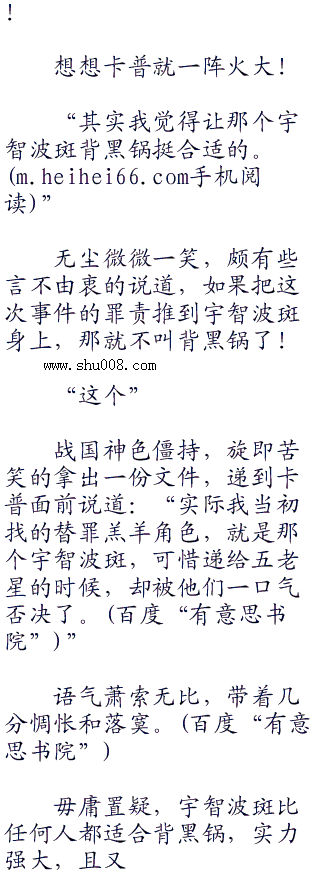 ！
想想卡普就一阵火大！
“其实我觉得让那个宇
智波斑背黑锅挺合适的。
(m.heihei66.com手机阅
读)”
无尘微微一笑，颇有些
言不由衷的说道，如果把这
次事件的罪责推到宇智波斑
身上，那就不叫背黑锅了！
www.shu008.com
“这个”
战国神色僵持，旋即苦
笑的拿出一份文件，递到卡
普面前说道：“实际我当初
找的替罪羔羊角色，就是那
个宇智波斑，可惜递给五老
星的时候，却被他们一口气
否决了。(百度“有意思书
院”)”
语气萧索无比，带着几
分惆怅和落寞。(百度“有意
思书院”)
毋庸置疑，宇智波斑比
任何人都适合背黑锅，实力
强大，且又